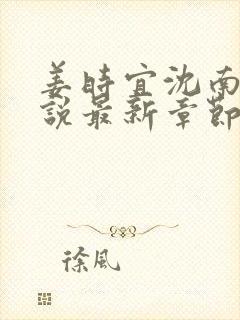 姜時宜沈南
說最新章節
徐風